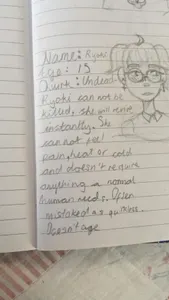 Name: Ryoki
Age: 15
Quirk: Undead
Ryoki can not be
killed, she will revive
instantly. She
can not feel
pain, heat or cold
and doesn't require
anything a normal
human needs. Often
mistaked as quirkless.
Doesnt age